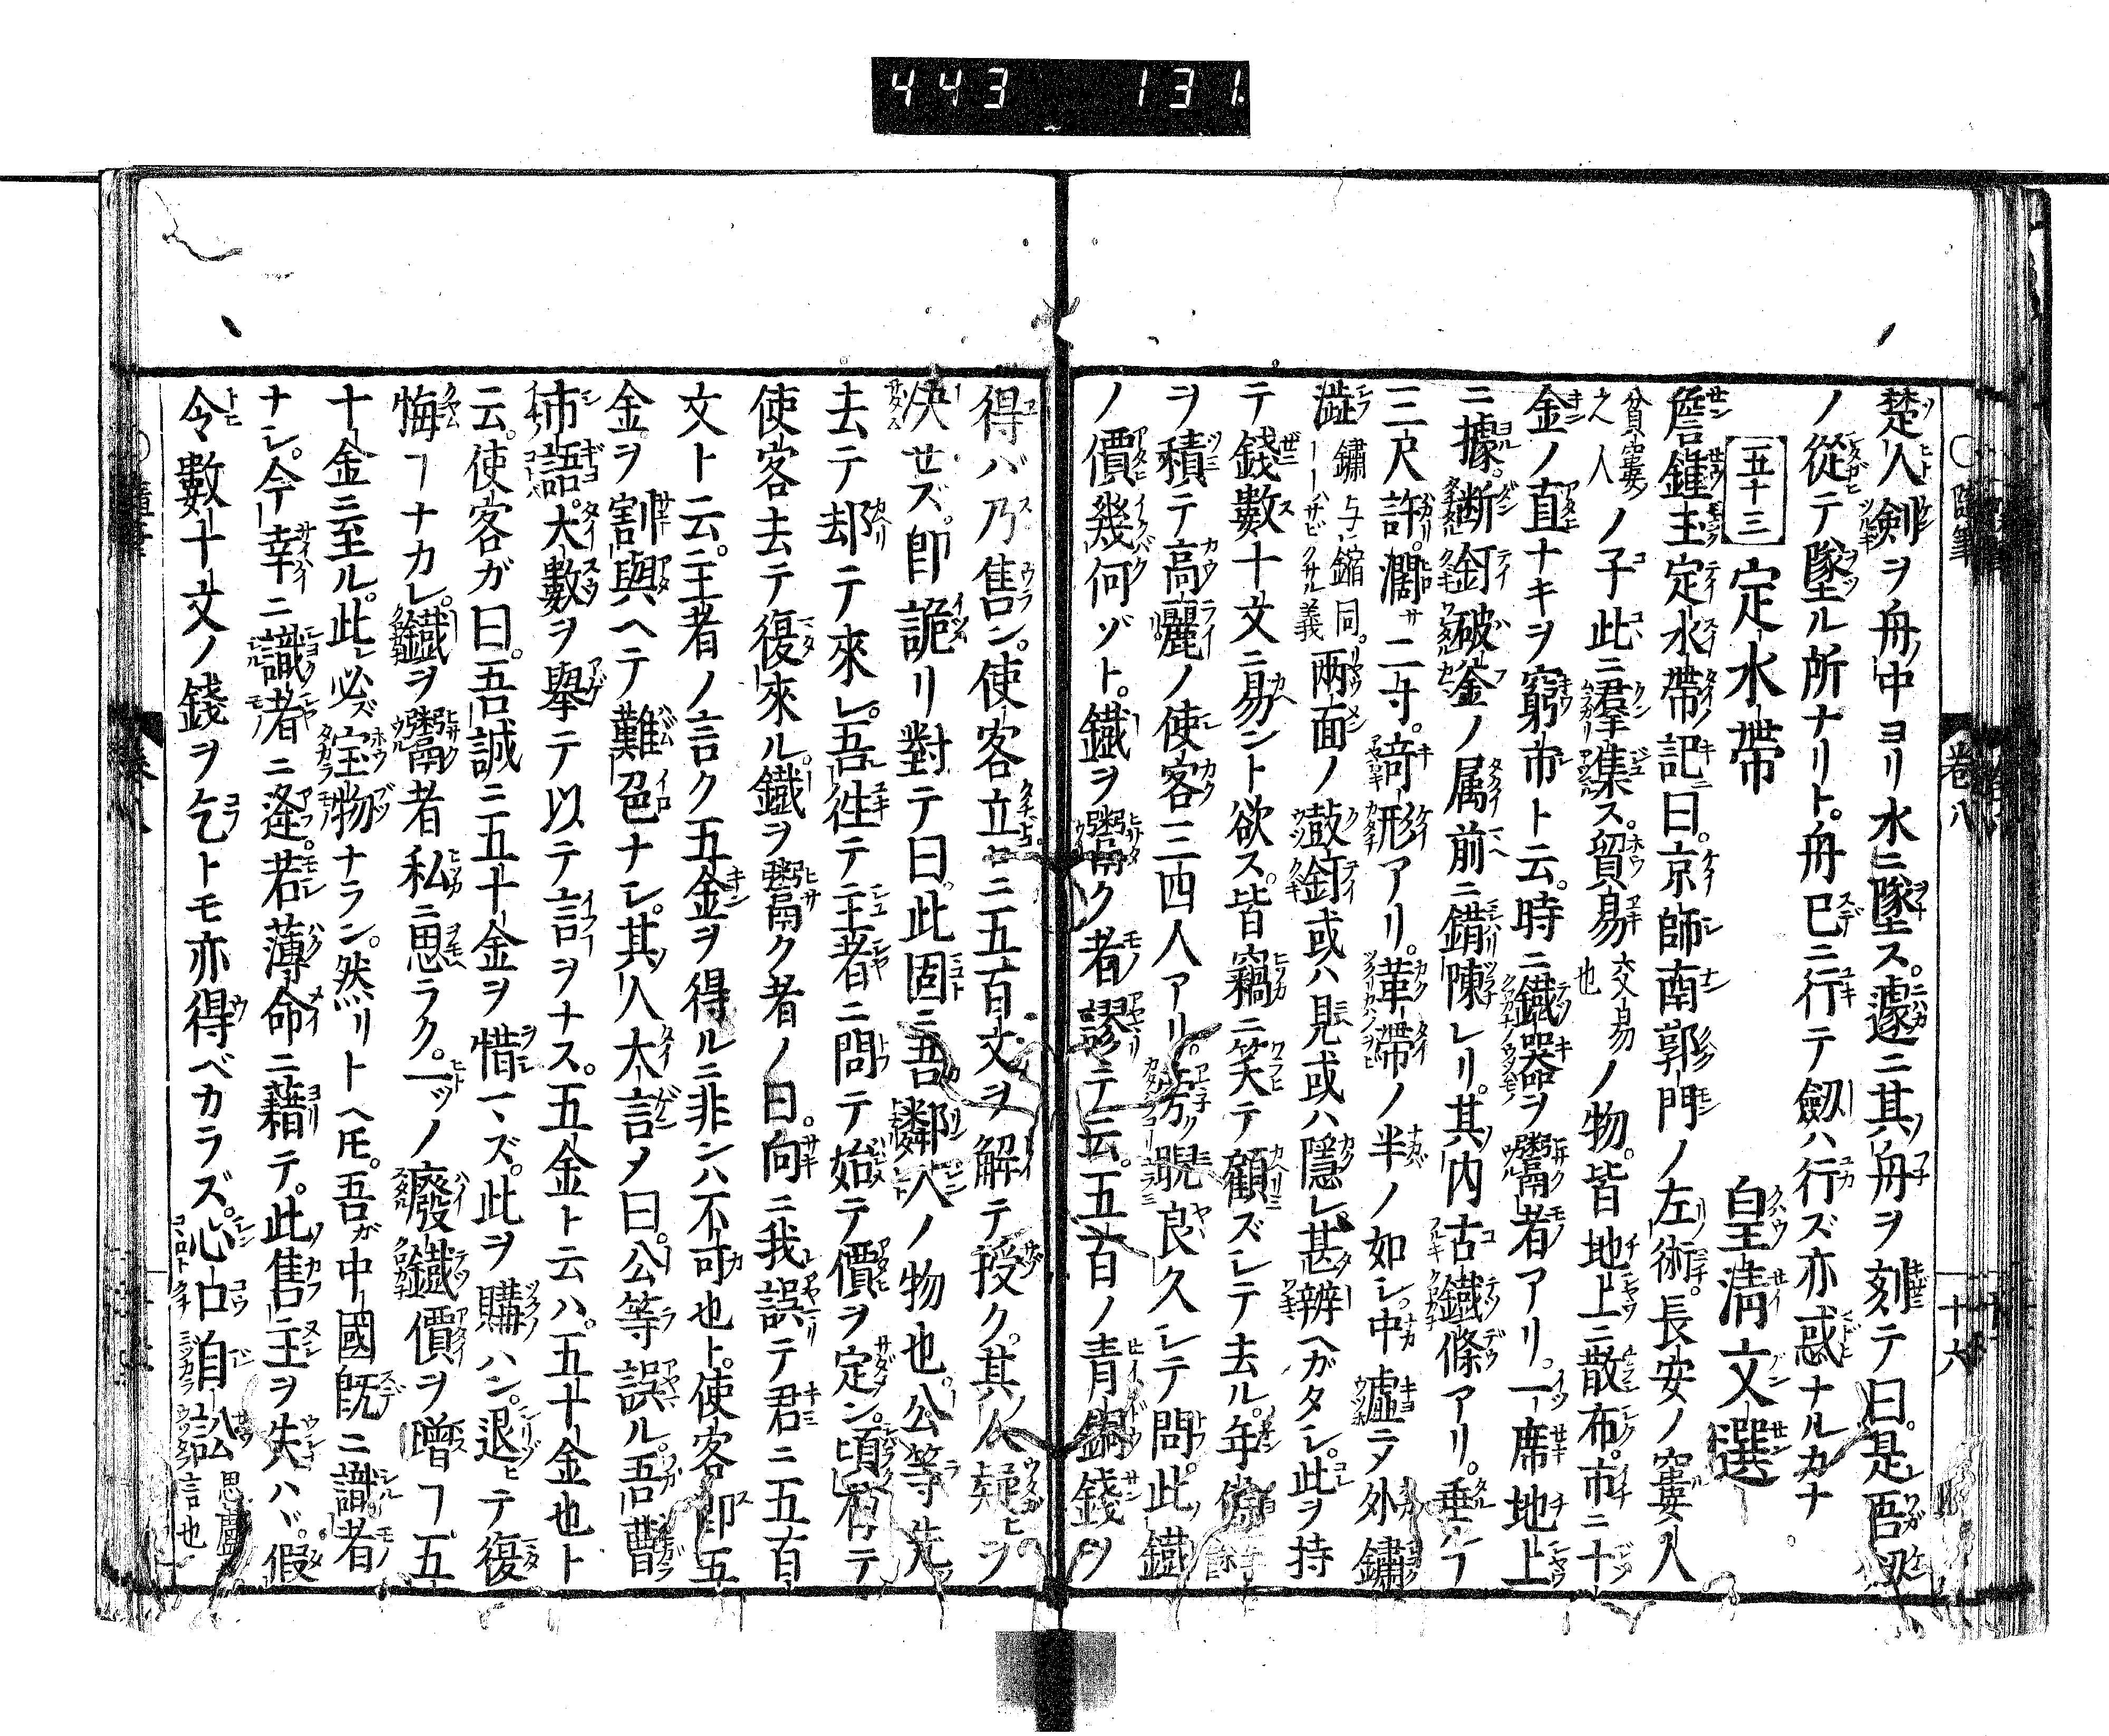 443 131.
楚人剣ヲ舟中ヨリ水ニ墜ス。遽ニ其舟ヲ刻テ曰。是吾劔
ノ從テ墜ル所ナリト。舟已ニ行テ劔ハ行ズ亦惑ナルカナ
五十三 定水帶 皇淸文選
詹鍾玉定水帶記曰。京師南郭門ノ左術。長安ノ窶人
貧窶ノ之人ノ子此ニ羣集ス。貿易交易也ノ物。皆地上ニ散布。市ニ十
金ノ直ナキヲ窮市ト云。時ニ鐵器ヲ鬻者アリ。一席地上
ニ據。断釘破釜ノ属前ニ錯陳レリ。其内古鐵條アリ。垂テ
三尺許。濶サ二寸。竒形アリ。革帶ノ半ノ如シ。中虛ニ外鏽
澁鏽与鏥同。両面ノ鼓釘或ハ見或ハ隱レ。甚辨ヘガタシ。此ヲ持
テ錢數十文ニ易ント欲ス。皆竊ニ笑テ顧ズシテ去ル。年餘
ヲ積テ高麗ノ使客三四人アリ。旁睨良久シテ問。此鐵
ノ價幾何ゾト。鐵ヲ鬻ク者謬テ云。五百ノ青銅錢ヲ
得バ乃售ン。使客立ニ五百文ヲ解テ授ク。其人疑ヒヲ
決せズ。卽詭リ對テ曰此固ニ吾鄰人ノ物也。公等先
去テ却テ來レ。吾徃テ主者ニ問テ始テ價ヲ定ン。頃有テ
使客去テ復來ル鐵ヲ鬻ク者ノ曰。向ニ我誤テ君ニ五百
文ト云。主者ノ言ク五金ヲ得ルニ非ンハ不可也ト。使客卽五
金ヲ割與ヘテ難色ナシ。其人大言メ曰。公等誤ル。吾曹
市語。大數ヲ擧テ以テ言ヲナス。五金ト云ハ。五十金也ト
云。使客ガ曰。吾誠ニ五十金ヲ惜マズ。此ヲ購ハン。退ヒテ復
悔ヿナカレ。鐵ヲ鬻者私ニ思ラク。一ツノ廢鐵價ヲ增ヿ五
十金ニ至ル。此必ズ宝物ナラン。然リトヘ𪜈。吾ガ中國旣ニ識者
ナシ。今幸ニ識者ニ逢。若薄命ニ藉テ。此售主ヲ失ハヾ。假
令數十文ノ錢ヲ乞トモ亦得ベカラズ。心口自訟思慮言也
卷八
十六